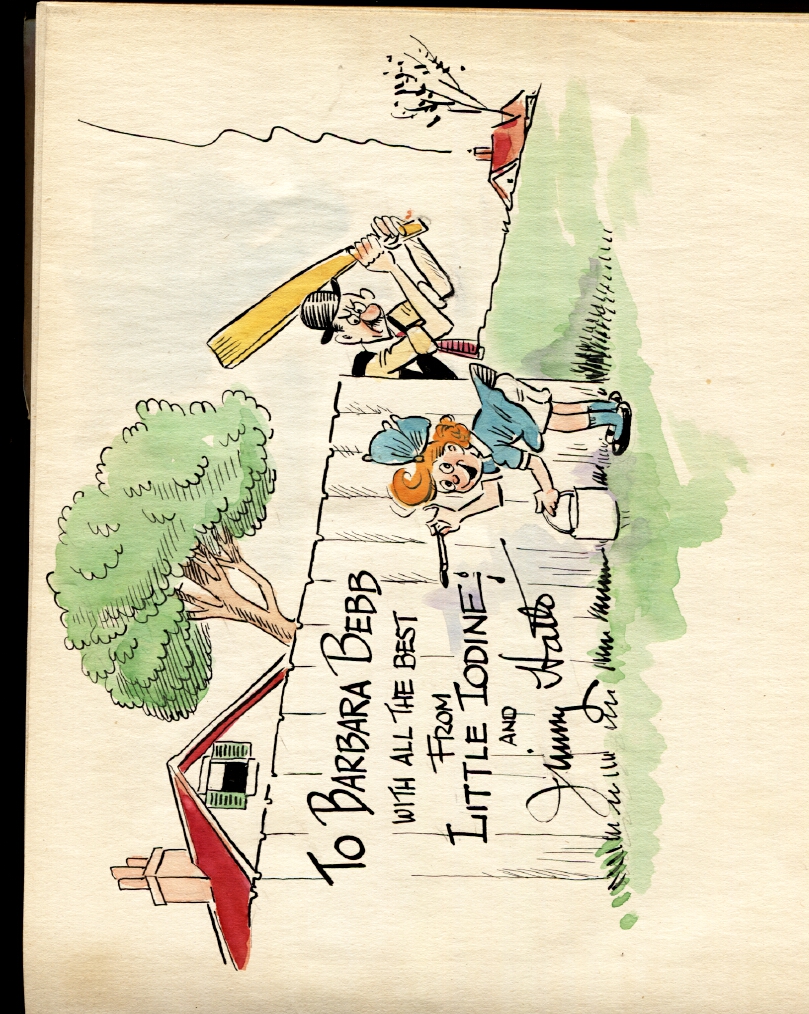 To BARBARA BEBB
WITH ALL THE BEST
FROM
LITTLE IODINE!
AND
Jimmy Hatlo